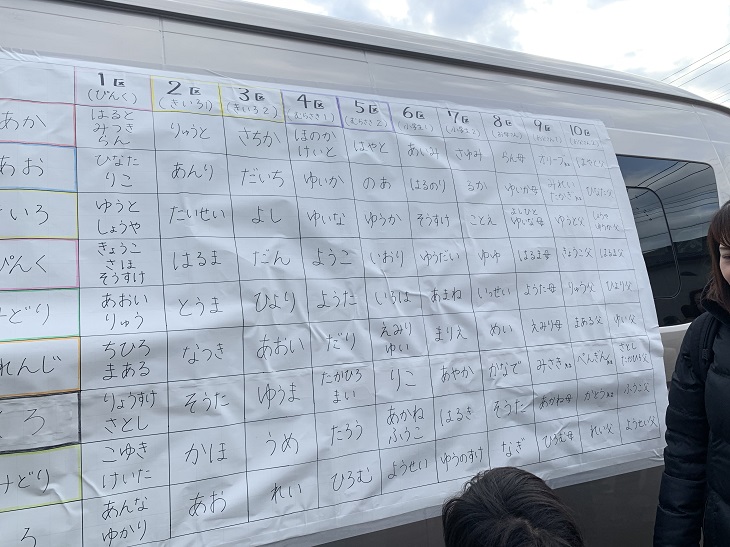 1区 2区 3区 4区 5区 6区 7区 8区 9区 10区
(ぴんく) (きいろ1) (きいろ2) (むらさき1) (むらさき2)
あか はると みつき らん りゅうと さちか ほのか けいと はやと あいみ さゆみ らん母
あお ひなた りこ あんり だいち ゆいか のあ はるのり るか ゆいか母 ひなた父
いろ ゆうと しょうや たいせい よし ゆいな ゆうか そうすけ ことえ よしひと ゆいな母 ゆうと父
ぴんく きょうこ さほ そうすけ はるま だん ようこ いおり ゆうだい ゆゆ はるま母 きょうこ父 はるま父
どり あおい りゅう とうま ひより ようた いろは あまね いっせい ようた母 りゅう父 ひより父
れんじ ちひろ まある なつき あおい だり えみり ゆい まりえ めい えみり母 まある父 ゆい父
ろ りょうすけ さとし そうた ゆうま たかひろ まい りこ あやか かなで みさき べんさん さとし たかひろ父
どり こゆき けいた かほ うめ たろう あかね ふうこ はるき そうた あかね母 かとう ふうこ父
ろ あんな ゆかり あお れい ひろむ ようせい ゆうのすけ なぎ ひろむ母 れい父 ようせい父